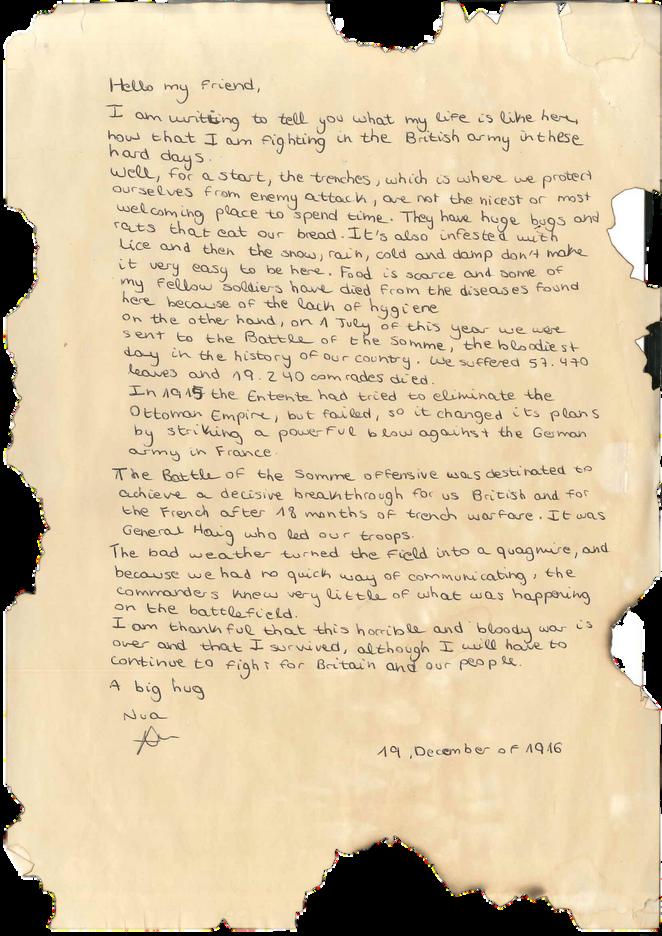 Hello my friend,
I am writting to tell you what my life is like here,
now that I am fighting in the British army in these
hard days.
Well, for a start, the trenches, which is where we protect
ourselves from enemy attack, are not the nicest or most
welcoming place to spend time. They have huge bugs and
rats that eat our bread. It's also infested with
lice and then the snow, rain, cold and damp don't make
it very easy to be here. Food is scarce and some of
my fellow soldiers have died from the diseases found
here because of the lack of hygiene
on the other hand, on 1 July of this year we were
sent to the Battle of the Somme, the bloodiest
day in the history of our country. We suffered 57.470
leaves and 19.240 comrades died.
In 1915 the Entente had tried to eliminate the
Ottoman Empire, but failed, so it changed its plans
by striking a powerful blow against the German
army in France.
The Battle of the Somme offensive was destinated to
achieve a decisive breakthrough for us British and for
the French after 18 months of trench warfare. It was
General Haig who led our troops.
The bad weather turned the field into a quagmire, and
because we had no quick way of communicating, the
commanders knew very little of what was happening
on the battlefield.
I am thankful that this horrible and bloody war is
over and that I survived, although I will have to
continue to fight for Britain and our people.
A big hug
Nua
19, December of 1916